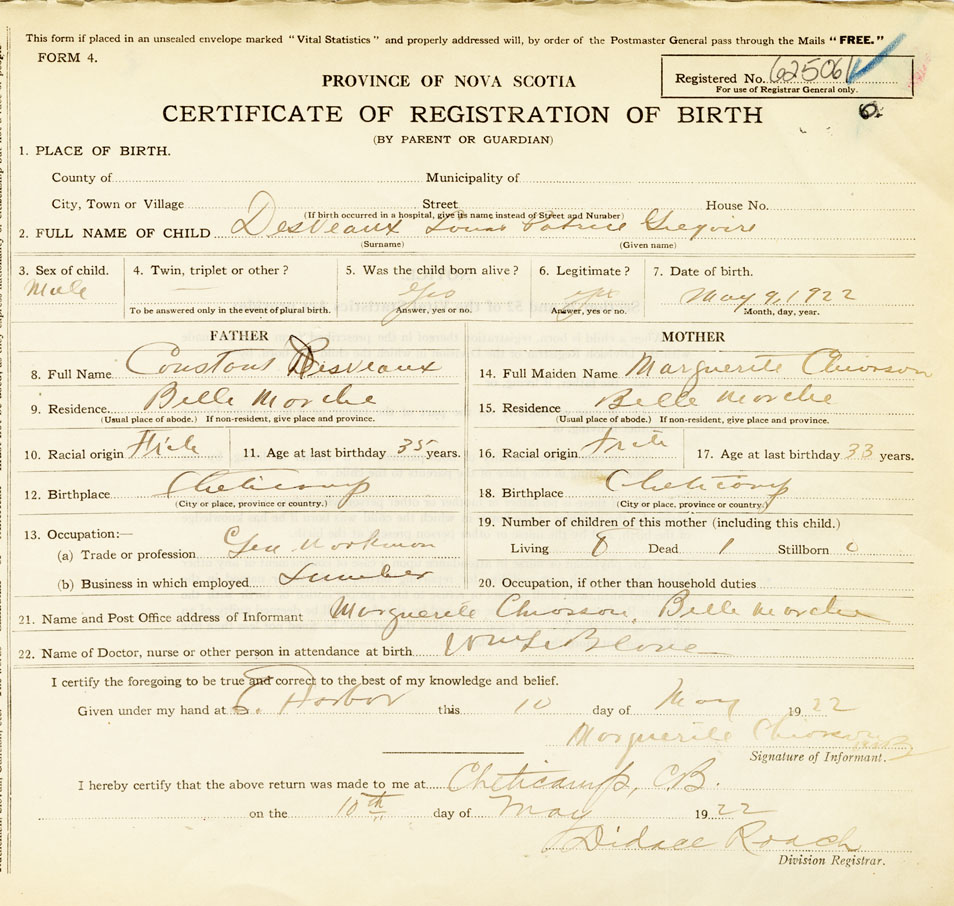 This form if placed in an unsealed envelope marked "Vital Statistics" and properly addressed will, by order of the Postmaster General pass through the Mails "FREE."
FORM 4.
Registered No. 62506
For use of Registrar General only.
6.
PROVINCE OF NOVA SCOTIA
CERTIFICATE OF REGISTRATION OF BIRTH
(BY PARENT OR GUARDIAN)
1. PLACE OF BIRTH.
County of Municipality of
City, Town or Village Street House No.
(If birth occurred in a hospital, give its name instead of Street and Number)
2. FULL NAME OF CHILD DesVeaux Louis Patrice Gregoire
(Surname) (Given name)
3. Sex of child. 4. Twin, triplet or other? 5. Was the child born alive? 6. Legitimate? 7. Date of birth.
Male — yes yes May 9, 1922
To be answered only in the event of plural birth. Answer, yes or no. Answer, yes or no. Month, day, year.
FATHER MOTHER
8. Full Name Constant Desveaux 14. Full Maiden Name Marguerite Chiasson
9. Residence. Belle Marche 15. Residence Belle Marche
(Usual place of abode.) If non-resident, give place and province. (Usual place of abode.) If non-resident, give place and province.
10. Racial origin 11. Age at last birthday 35 years. 16. Racial origin 17. Age at last birthday 33 years.
12. Birthplace Cheticamp 18. Birthplace Cheticamp
(City or place, province or country.) (City or place, province or country.)
13. Occupation:— 19. Number of children of this mother (including this child.)
(a) Trade or profession Gen Workman Living 8 Dead 1 Stillborn 0
(b) Business in which employed Lumber 20. Occupation, if other than household duties
21. Name and Post Office address of Informant Marguerite Chiasson, Belle Marche
22. Name of Doctor, nurse or other person in attendance at birth
I certify the foregoing to be true and correct to the best of my knowledge and belief.
Given under my hand at E. Harbor this 10 day of May 1922
Marguerite Chiasson
Signature of Informant.
I hereby certify that the above return was made to me at Cheticamp, C.B.
on the 10th day of May 1922
Didace Roach
Division Registrar.